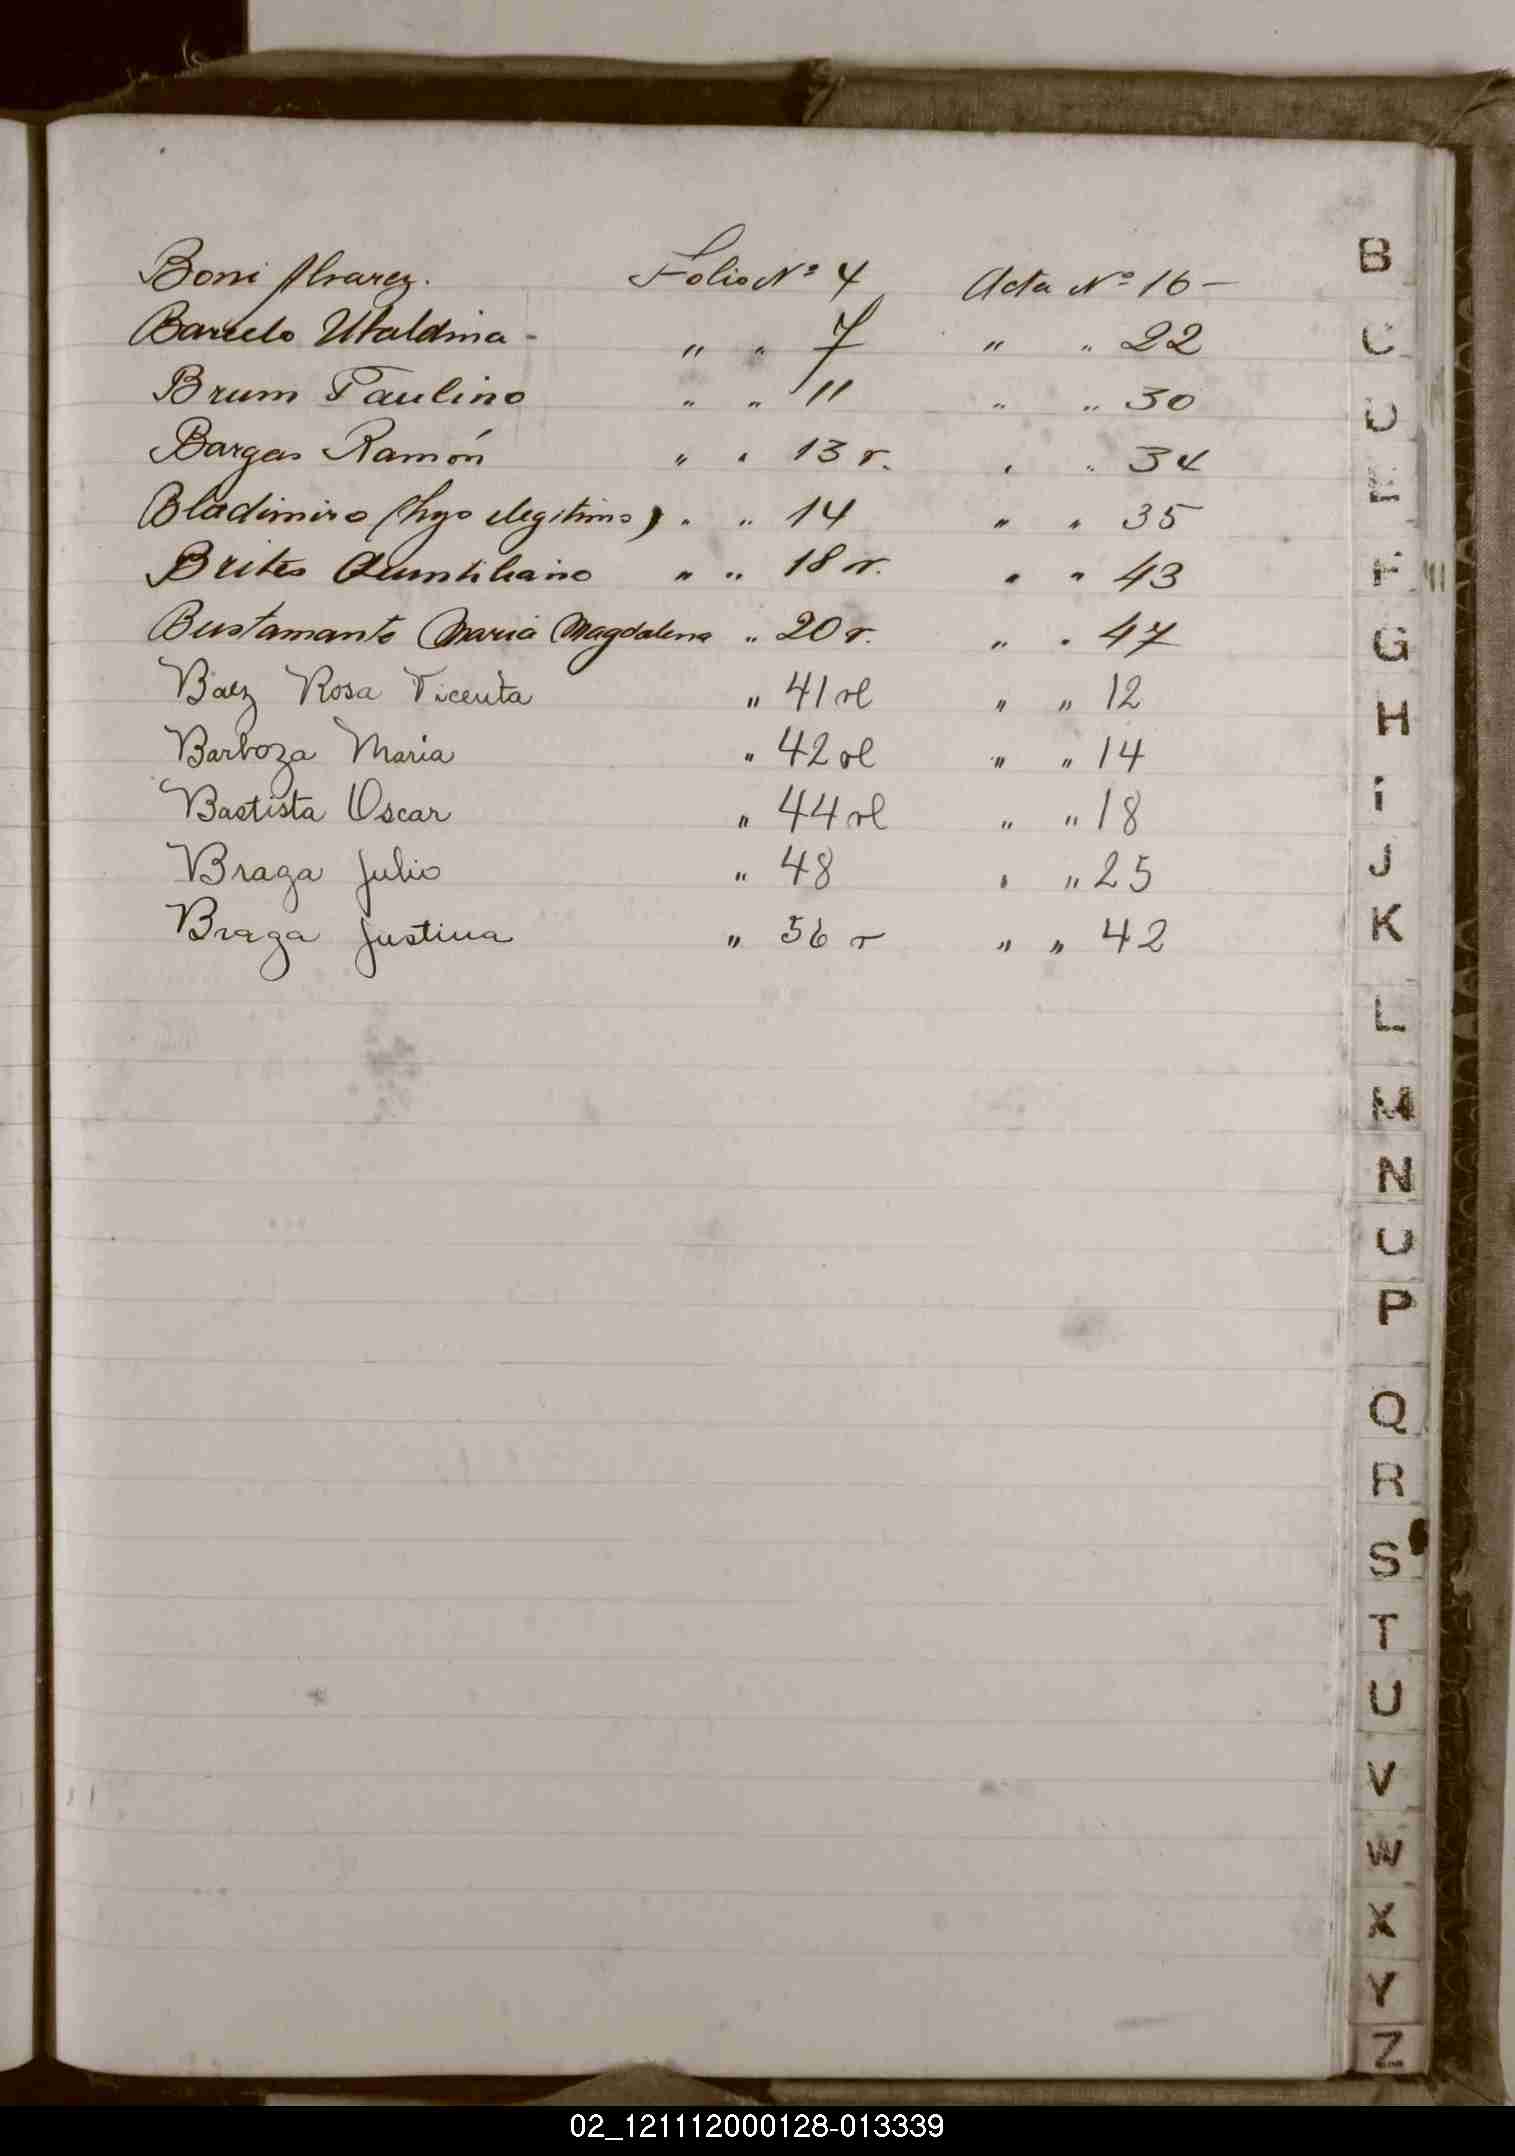 Boni Alvarez. Folio Nº 4 Acta Nº 16 -
Barcelo Ubaldina - " " 7 " " 22
Brum Paulino " " 11 " " 30
Bargas Ramón " " 13 r. " " 34
Bladimiro (hijo elegitimo) " " 14 " " 35
Brites Quintiliano " " 18 r. " " 43
Bustamante Maria Magdalena " 20 r. " " 47
Baez Rosa Vicenta " 41 vl " " 12
Barboza Maria " 42 vl " " 14
Bastista Oscar " 44 vl " " 18
Braga Julio " 48 " " 25
Braga Justina " 56 r " " 42
B
C
D
E
F
G
H
i
J
K
L
M
N
O
P
Q
R
S
T
U
V
W
X
Y
Z
02_121112000128-013339